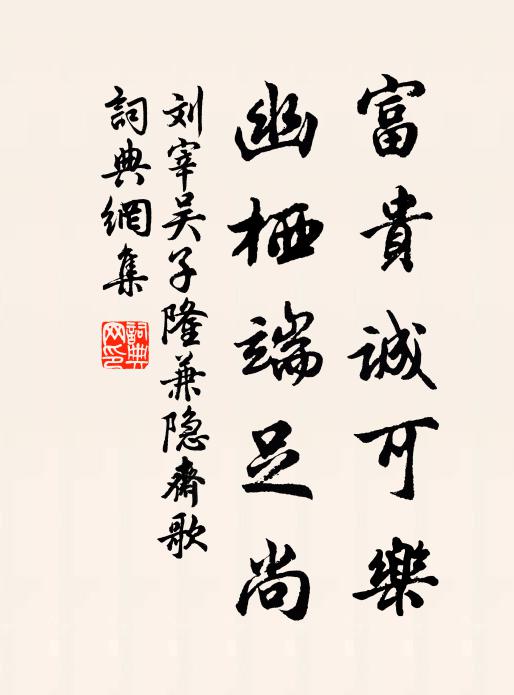 富貴誠可樂
幽栖端足尚
刘宰吴子隆兼隐齋歌
詞典網集
詞典网印